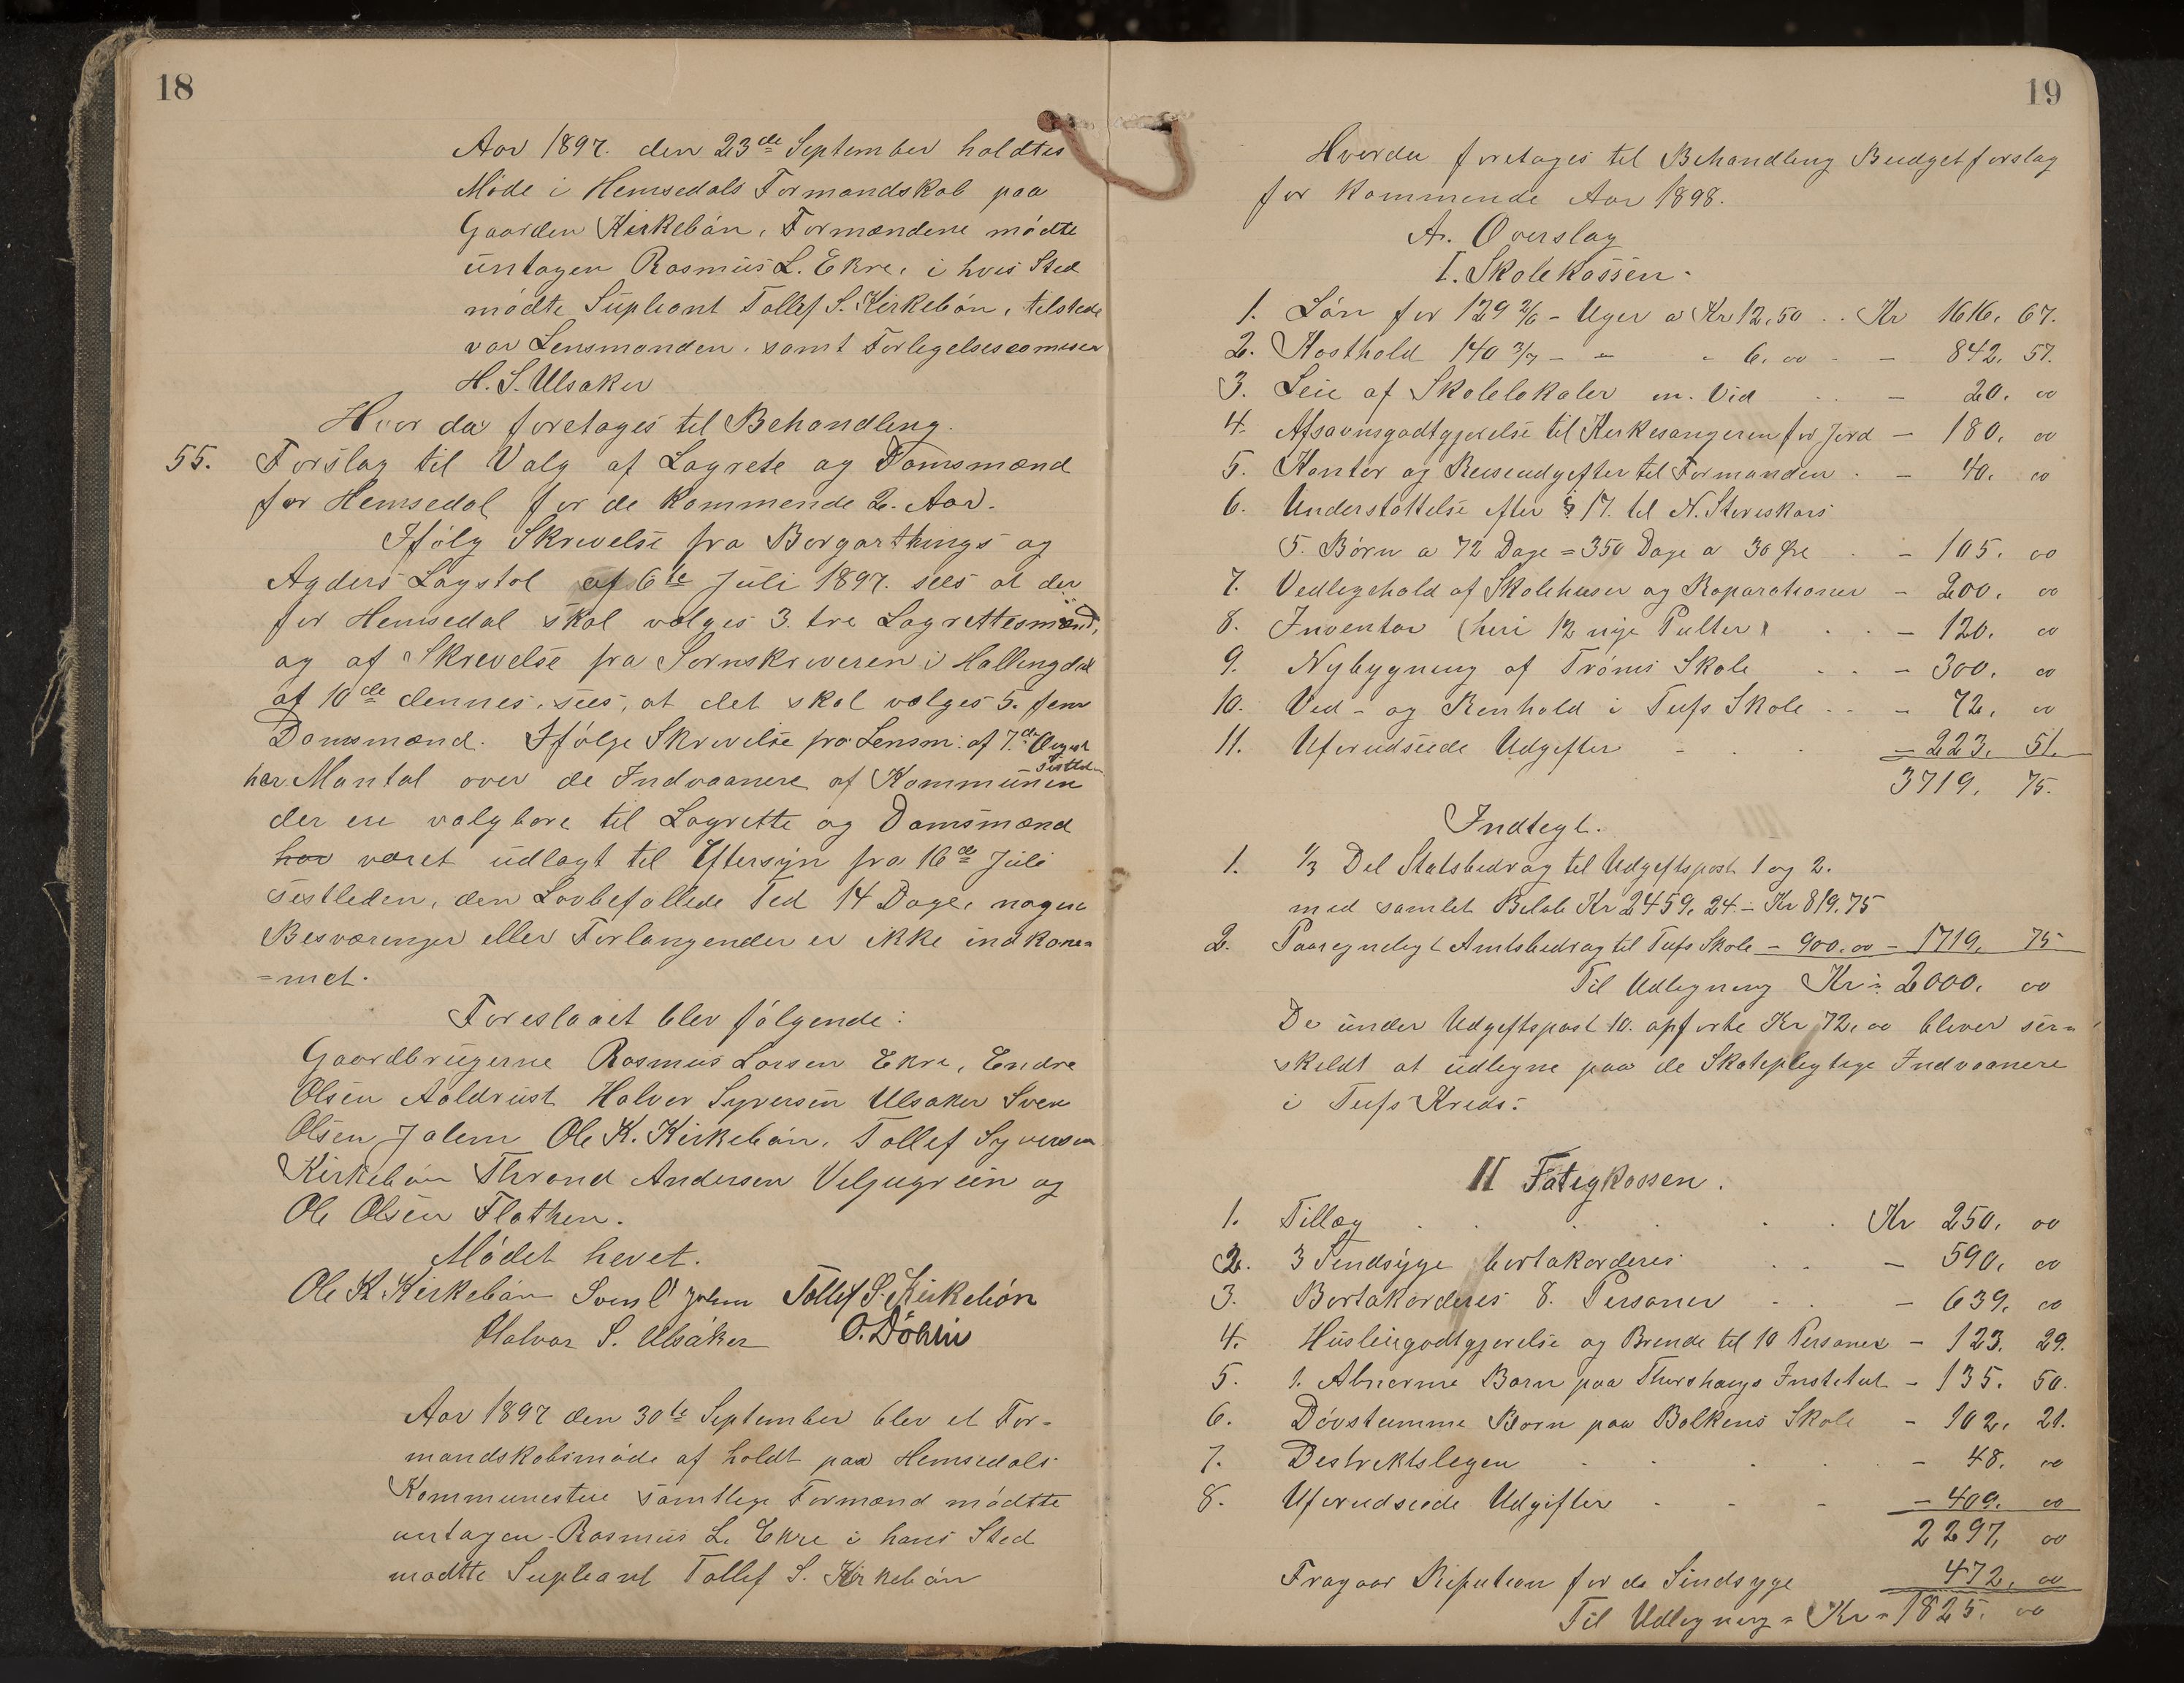 18
Aar 1897. den 23de September holdtes
Møde i Hemsedals Formandskab paa
Gaarden Kirkebøn, Formændene mødte
untagen Rasmus L. Ekre, i hvis Sted
mødte Supleant Tollef S. Kirkebøn, tilstede
var Lensmanden, samt
H. S. Ulsaker
Hvor da foretages til Behandling.
55. Forslag til Valg af Lagrete og Domsmænd
for Hemsedal for de kommende 2. Aar.
Ifølg Skrivelse fra Borgarthings og
Agders Lagstol af 6te Juli 1897. sees at der
for Hemsedal skal vælges 3. tre Lagrettesmænd,
og af Skrivelse fra Sornskriveren i Hallingdal
af 10de dennes, sees, at det skal vælges 5. fem
Domsmænd. Ifølge Skrivelse fra Lensm. af 7.de August
sistled.
har Mantal over de Indvaanere af Kommunen
der ere valgbare til Lagrette og Domsmænd
har været udlagt til Eftersyn fra 16de Juli
sistleden, den Lovbefallede Tid 14 Dage, nogen
Besværinger eller Forlangender er ikke indkom=
=met.
Foreslaaet blev følgende:
Gaardbrugerne Rasmus Larsen Ekre, Endre
Olsen Aaldrust Halvor Syversen Ulsaker Sven
Olsen Jalem Ole K. Kirkebøn, Tollef Syversen
Kirkebøn Thrond Andersen Veljugrein og
Ole Olsen Flathen.
Mødet hevet.
Ole K Kirkebøn Sven O Jalem Tollef S. Kirkebøn
Halvor S. Ulsaker O. Döhlin
Aar 1897 den 30te September blev et For-
mandskabsmøde af holdt paa Hemsedals
Kommunestue samtlege Formænd mødtte
untagen Rasmus L. Ekre i hans Sted
mødtte Supleant Tollef S. Kirkebøn
19
Hvorda foretages til Behandling Budgetforslag
for kommende Aar 1898.
A. Overslag
I. Skolekassen.
1. Løn for 129 2/6 - Uger a Kr 12,50 .. Kr 1616, 67.
2. Kosthold 140 3/7 - - - 6. 00 - - 842. 57.
3. Leie af Skolelokaler m. Vid . . - 20. 00
4. Afsavnsgodtgjørelse til Kirkesangeren for Jord - 180. 00
5. Kontor og Reiseudgifter til Formanden . - 40. 00
6. Understøttelse efter § 17. til N. Storeskars
5. Børn a 72 Dage = 350 Dage a 30 Øre . - 105. 00
7. Vedligehold af Skolehuser og Raparationer - 200. 00
8. Inventar (heri 12 nye Pulter) . . - 120. 00
9. Nybygning af Trøms Skole . . - 300. 00
10. Ved- og Renhold i Tufs Skole .. - 72. 00
11. Uforudseede Udgifter - . . - 223. 51.
3719. 75.
Indtegt.
1. 1/3 Del Statsbedrag til Udgeftspost 1 og 2.
med samlet Beløb Kr 2459, 24 - Kr 819. 75
2. Paaregneligt Amtsbedrag til Tufs Skole - 900. 00 - 1719. 75
Til Udlegning Kr: 2000. 00
De under Udgeftspost 10. opførte Kr 72,00 blever sær=
skeldt at udlegne paa de Skatepleglige Indvaanere
i Tufs Kreds.
II Fatigkassen.
1. Tillæg . . . . . . Kr 250. 00
2. 3 Sindsyge bortakorderes . . - 590. 00
3. Bortakorderes 8. Personer - . - 639. 00
4. Husleiegodtgjørelse og Brende til 10 Personer - 123. 29.
5. 1. Abnorme Barn paa Thorshaugs Institut - 135. 50.
6. Døvstumme Barn paa Balkens Skole - 102. 21.
7. Destrektslegen . . . . - 48. 00
8. Uforudseede Udgifter - - - - 409. 00
2297. 00
Fragaar Refution for de Sindsyge 472. 00
Til Udlegning = Kr = 1825. 00